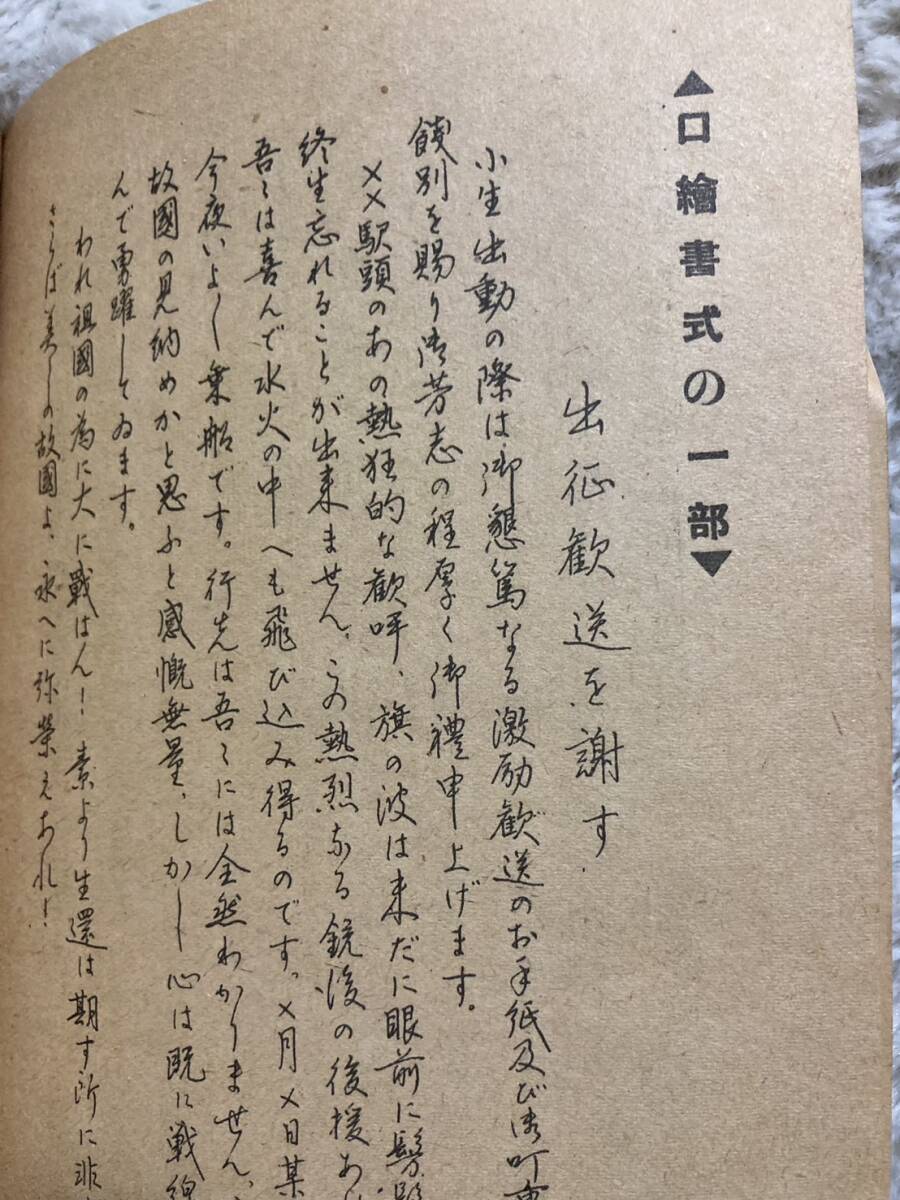 ▲口繪書式の一部▼
出征歓送を謝す
小生出動の際は御懇篤なる激励歓送のお手紙及び御叮重
餞別を賜り御芳志の程厚く御禮申上げます。
××駅頭のあの熱狂的な歓呼、旗の波は未だに眼前に髣
終生忘れることが出来ません、この熱烈なる銃後の後援あ
吾々は喜んで水火の中へも飛び込み得るのです。×月×日某
今夜いよ〱乗船です。行先は吾々には全然わかりません、
故國の見納めかと思ふと感慨無量、しかし心は既に戦線
んで勇躍してゐます。
われ祖國の為に大に戦はん！素より生還は期す所に非
さらば美しの故國よ、永へに弥栄えあれ！